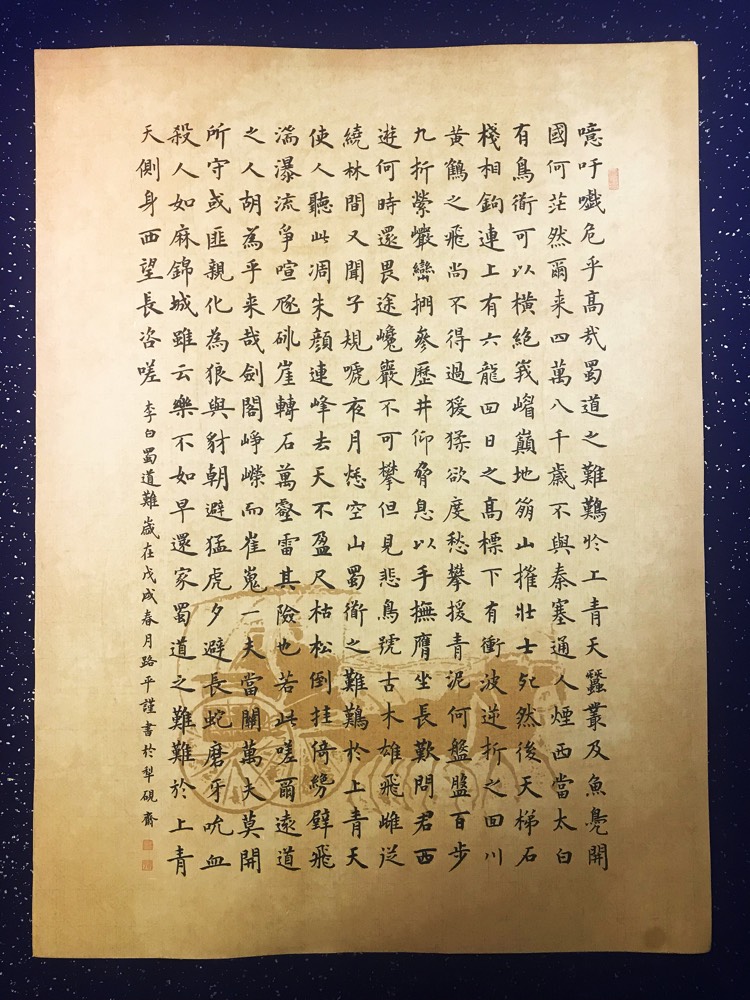 噫吁嚱危乎高哉蜀道之難難於上青天蠶叢及魚鳧開
國何茫然爾来四萬八千歲不與秦塞通人煙西當太白
有鳥衜可以橫絕峩嵋巔地崩山摧壯士死然後天梯石
棧相鉤連上有六龍回日之高標下有衝波逆折之回川
黃鶴之飛尚不得過猨猱欲度愁攀援青泥何盤盤百步
九折縈巖巒捫參歷井仰脅息以手撫膺坐長歎問君西
遊何時還畏途巉巖不可攀但見悲鳥號古木雄飛雌從
繞林間又聞子規嗁夜月愁空山蜀衜之難難於上青天
使人聽此凋朱顏連峰去天不盈尺枯松倒挂倚絶壁飛
湍瀑流爭喧豗砯崖轉石萬壑雷其險也若此嗟爾遠道
之人胡為乎来哉劍閣崢嶸而崔嵬一夫當關萬夫莫開
所守或匪親化為狼與豺朝避猛虎夕避長蛇磨牙吮血
殺人如麻錦城雖云樂不如早還家蜀道之難難於上青
天側身西望長咨嗟 李白蜀道難歲在戊戌春月路平謹書於犁硯齋